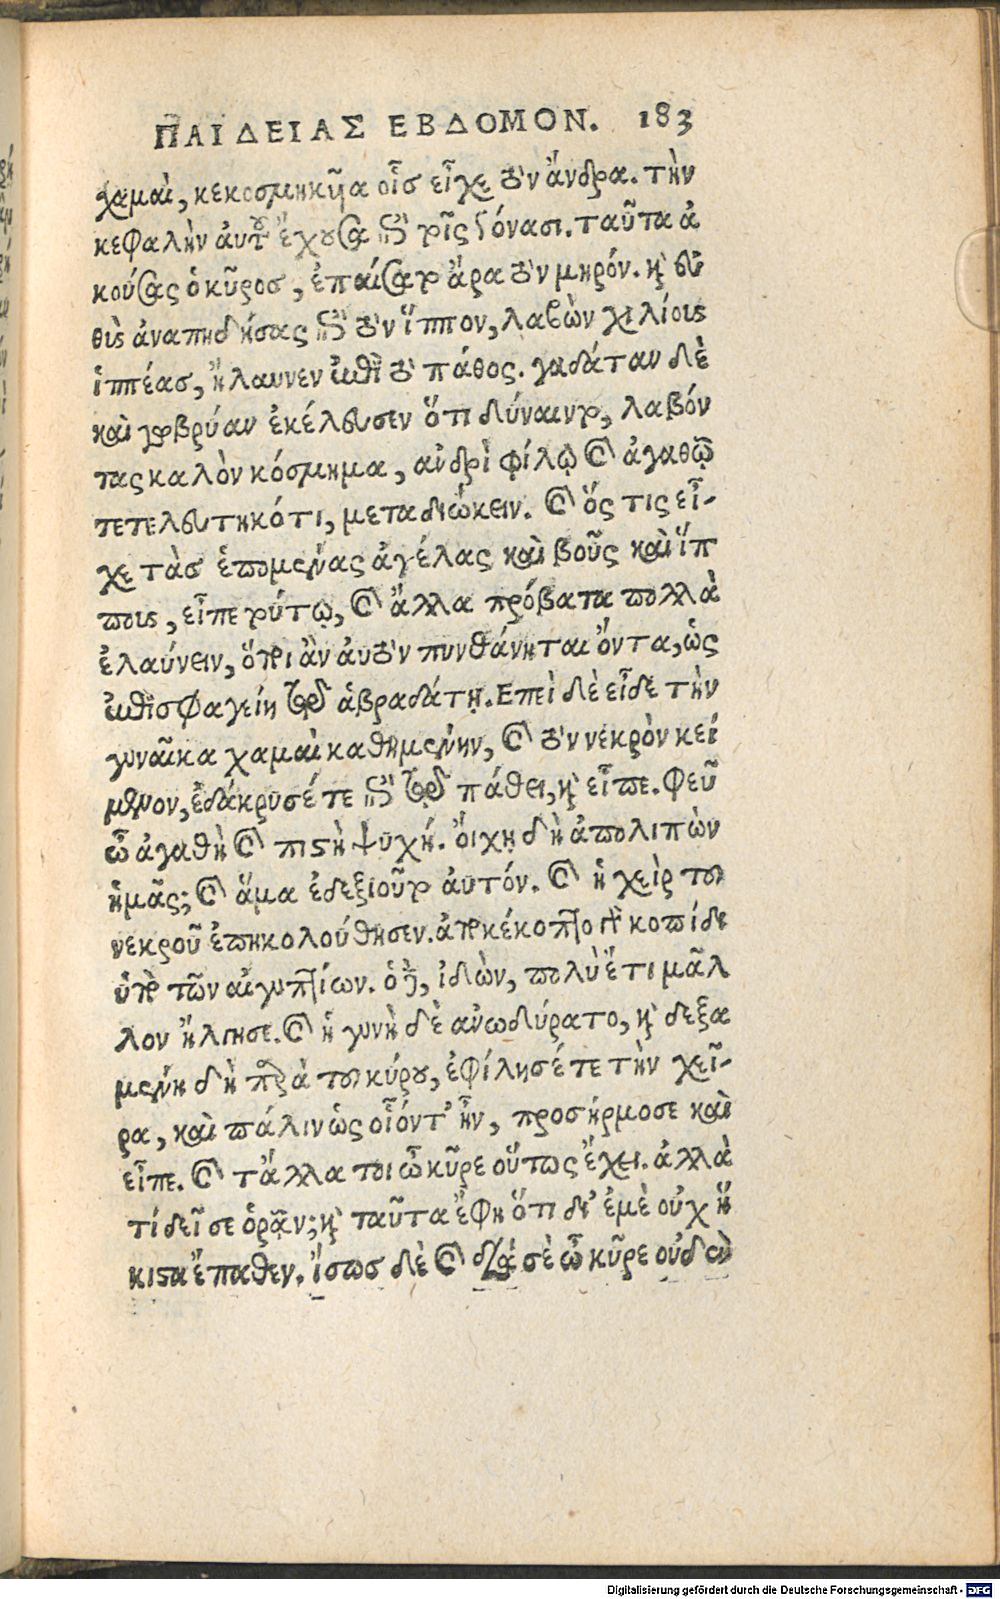 ΠΑΙΔΕΙΑΣ ΕΒΔΟΜΟΝ. 183
χαμαὶ, κεκοσμηκῆα οἷς εἶχε τὸν ἄνδρα. τὴν
κεφαλὴν αὐτοῦ ἔχουσα ἐπὶ τοῖς γόνασι. ταῦτα ἀ
κούσας ὁ κῦρος, ἐπαίσατο ἄρα τὸν μηρόν. καὶ εὐ
θὺς ἀναπηδήσας ἐπὶ τὸν ἵππον, λαβὼν χιλίους
ἱππέας, ἤλαυνεν ἐπὶ τὸ πάθος. γαδάταν δὲ
καὶ γωβρύαν ἐκέλευσεν ὅτι δύναιντο, λαβόν
τας καλὸν κόσμημα, ἀνδρὶ φίλῳ καὶ ἀγαθῷ
τετελευτηκότι, μεταδιώκειν. καὶ ὅς τις εἶ-
χε τὰς ἑπομένας ἀγέλας καὶ βοῦς καὶ ἵπ
πους, εἶπε τούτῳ, καὶ ἄλλα πρόβατα πολλὰ
ἐλαύνειν, ὅποι ἂν αὐτὸν πυνθάνηται ὄντα, ὡς
ἐπισφαγείη τῷ ἀβραδάτῃ. Επεὶ δὲ εἶδε τὴν
γυναῖκα χαμαὶ καθημένην, καὶ τὸν νεκρὸν κεί
μενον, ἐδάκρυσέ τε ἐπὶ τῷ πάθει, καὶ εἶπε. φεῦ
ὦ ἀγαθὴ καὶ πιστὴ ψυχή. οἴχῃ δὴ ἀπολιπὼν
ἡμᾶς; καὶ ἅμα ἐδεξιοῦτο αὐτόν. καὶ ἡ χεὶρ τοῦ
νεκροῦ ἐπηκολούθησεν. ἀπεκέκοπτο γὰρ κοπίδι
ὑπὸ τῶν αἰγυπτίων. ὁ δὲ, ἰδὼν, πολὺ ἔτι μᾶλ
λον ἤλγησε. καὶ ἡ γυνὴ δὲ ἀνωδύρατο, καὶ δεξα
μένη δὴ παρὰ τοῦ κύρου, ἐφίλησέ τε τὴν χεῖ-
ρα, καὶ πάλιν ὡς οἷόντ' ἦν, προσήρμοσε καὶ
εἶπε. καὶ τἄλλα τοι ὦ κῦρε οὕτως ἔχει. ἀλλὰ
τί δεῖ σε ὁρᾷν; καὶ ταῦτα ἔφη ὅτι δι' ἐμὲ οὐχ ἥ
κιστα ἔπαθεν. ἴσως δὲ καὶ διὰ σὲ ὦ κῦρε οὐδὲν
Digitalisierung gefördert durch die Deutsche Forschungsgemeinschaft - DFG